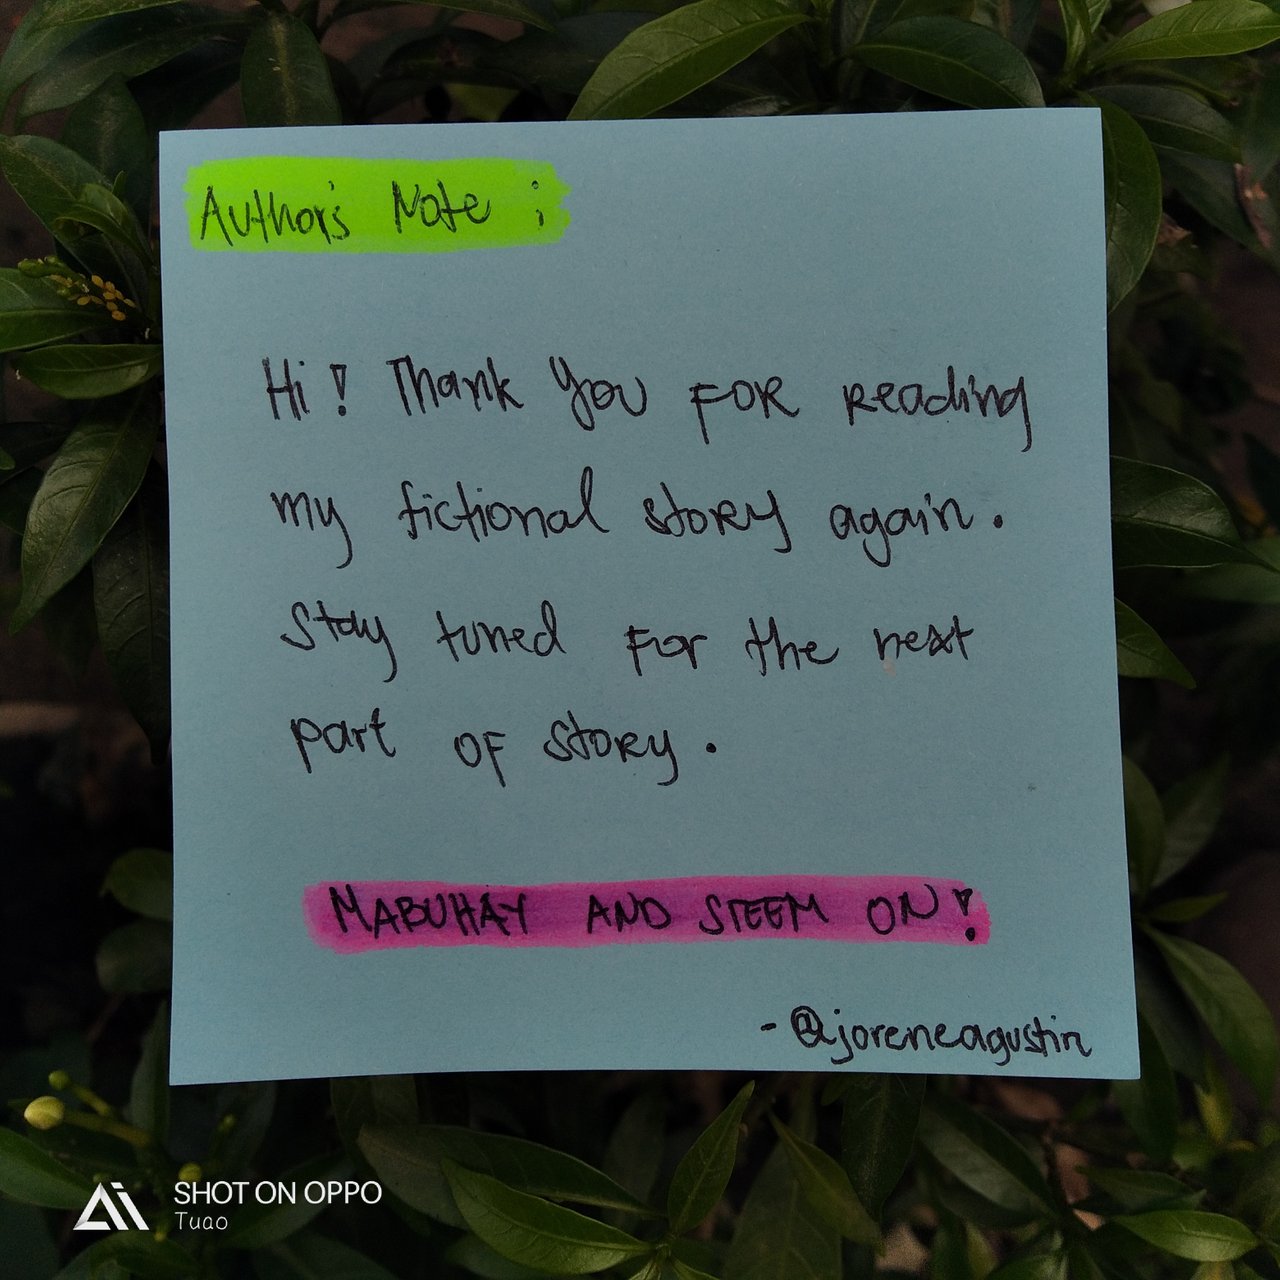 Author's Note ;
Hi! Thank you FOR reading
my fictional story again.
Stay tuned For the next
part OF story.
MABUHAY AND STEEM ON!
- @joreneagustin
SHOT ON OPPO
Tuao